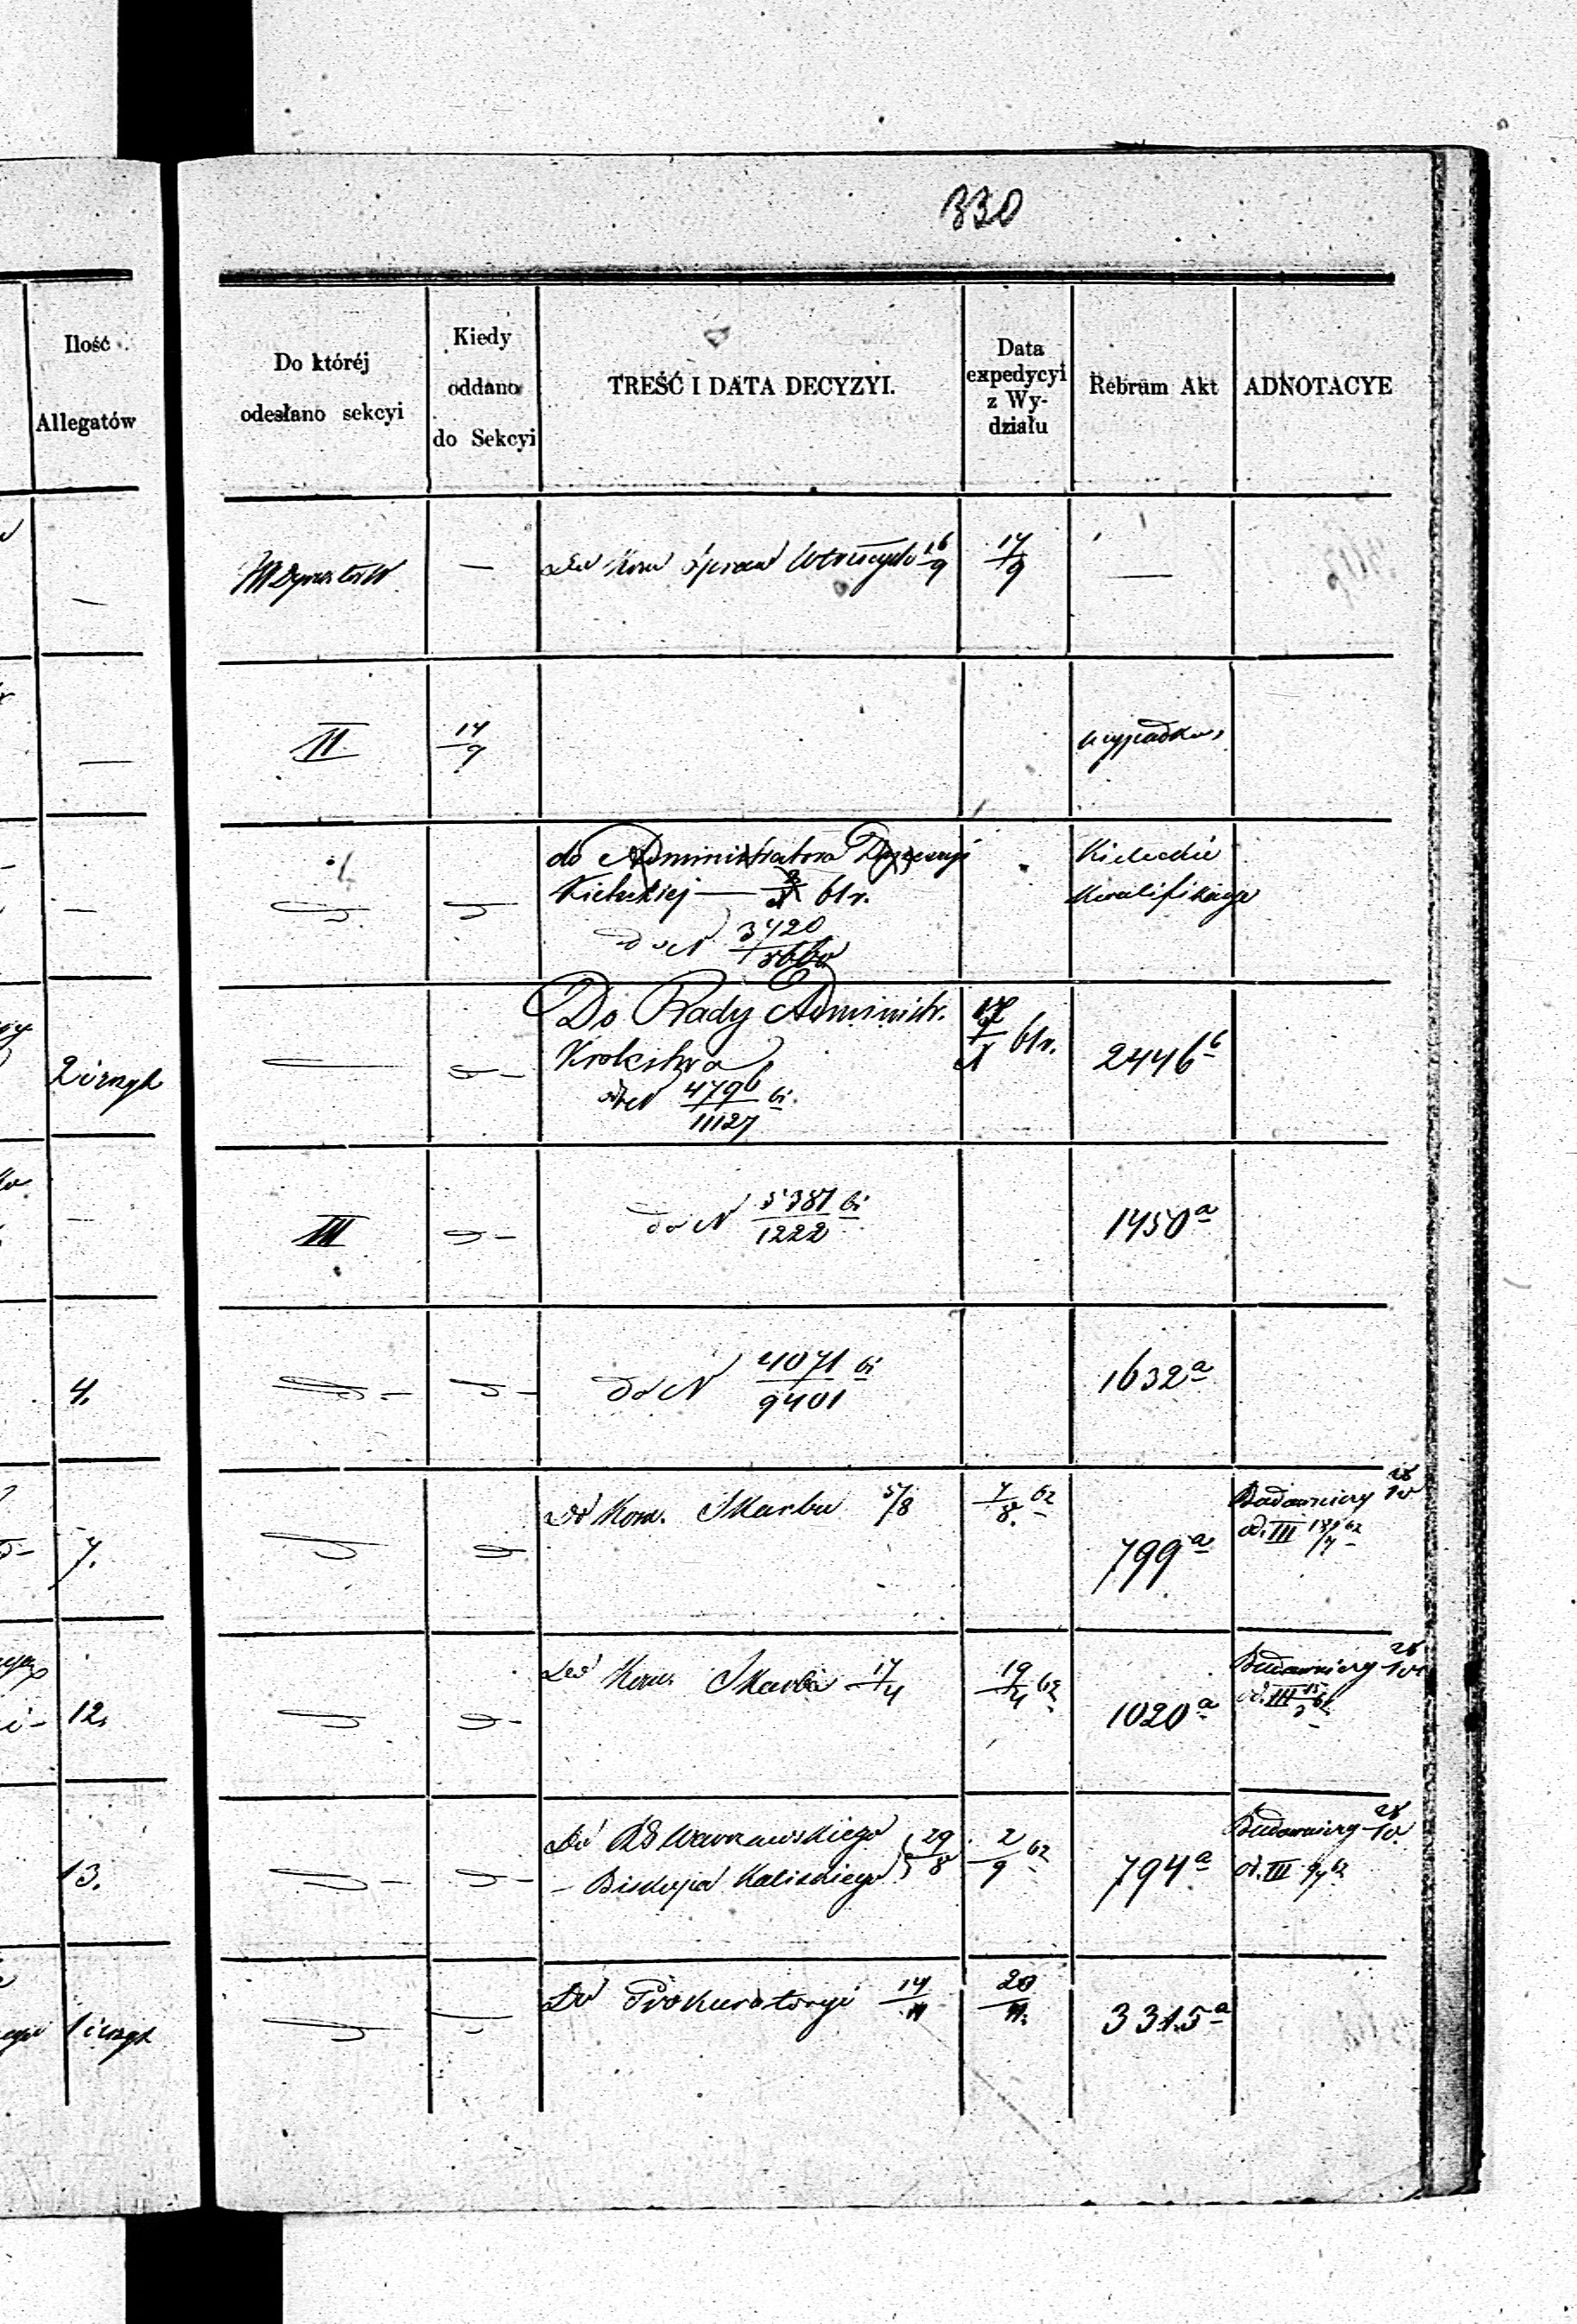 330
Ilość
Allegatów
Do któréj
odesłano sekcyi
Kiedy
oddano
do Sekcyi
TREŚĆ I DATA DECYZYI.
Data
expedycyi
z Wy-
działu
Rebrum Akt
ADNOTACYE
— — Kom Spraw 16/9 17/9 —
— II 14/9 wypadków
do Administratora Dyecezyi
Kieleckiej — 61 r.
do N 3420
Kieleckie
kwalifikacye
2 i rszyt
Do Rady Administr.
Królestwa
do N 4796/11127 bi.
61 r.
2446 b
— III do N 5381/1222 bi 1450 a
4. do N 4071/9401 bi 1632 a
7. Do Kom. Skarbu 5/8 7/8 62 799 a
Budowniczy
od. III
12. Do Kom. Skarbu 17/4 19/4 62 1020 a
Budowniczy
od. III
13. Do Warszawskiego
— Biskupa Kaliskiego 29/8 2/9 62 794 a
Budowniczy
od. III
Do Prokuratoryi 14/11 20/11. 3315 a